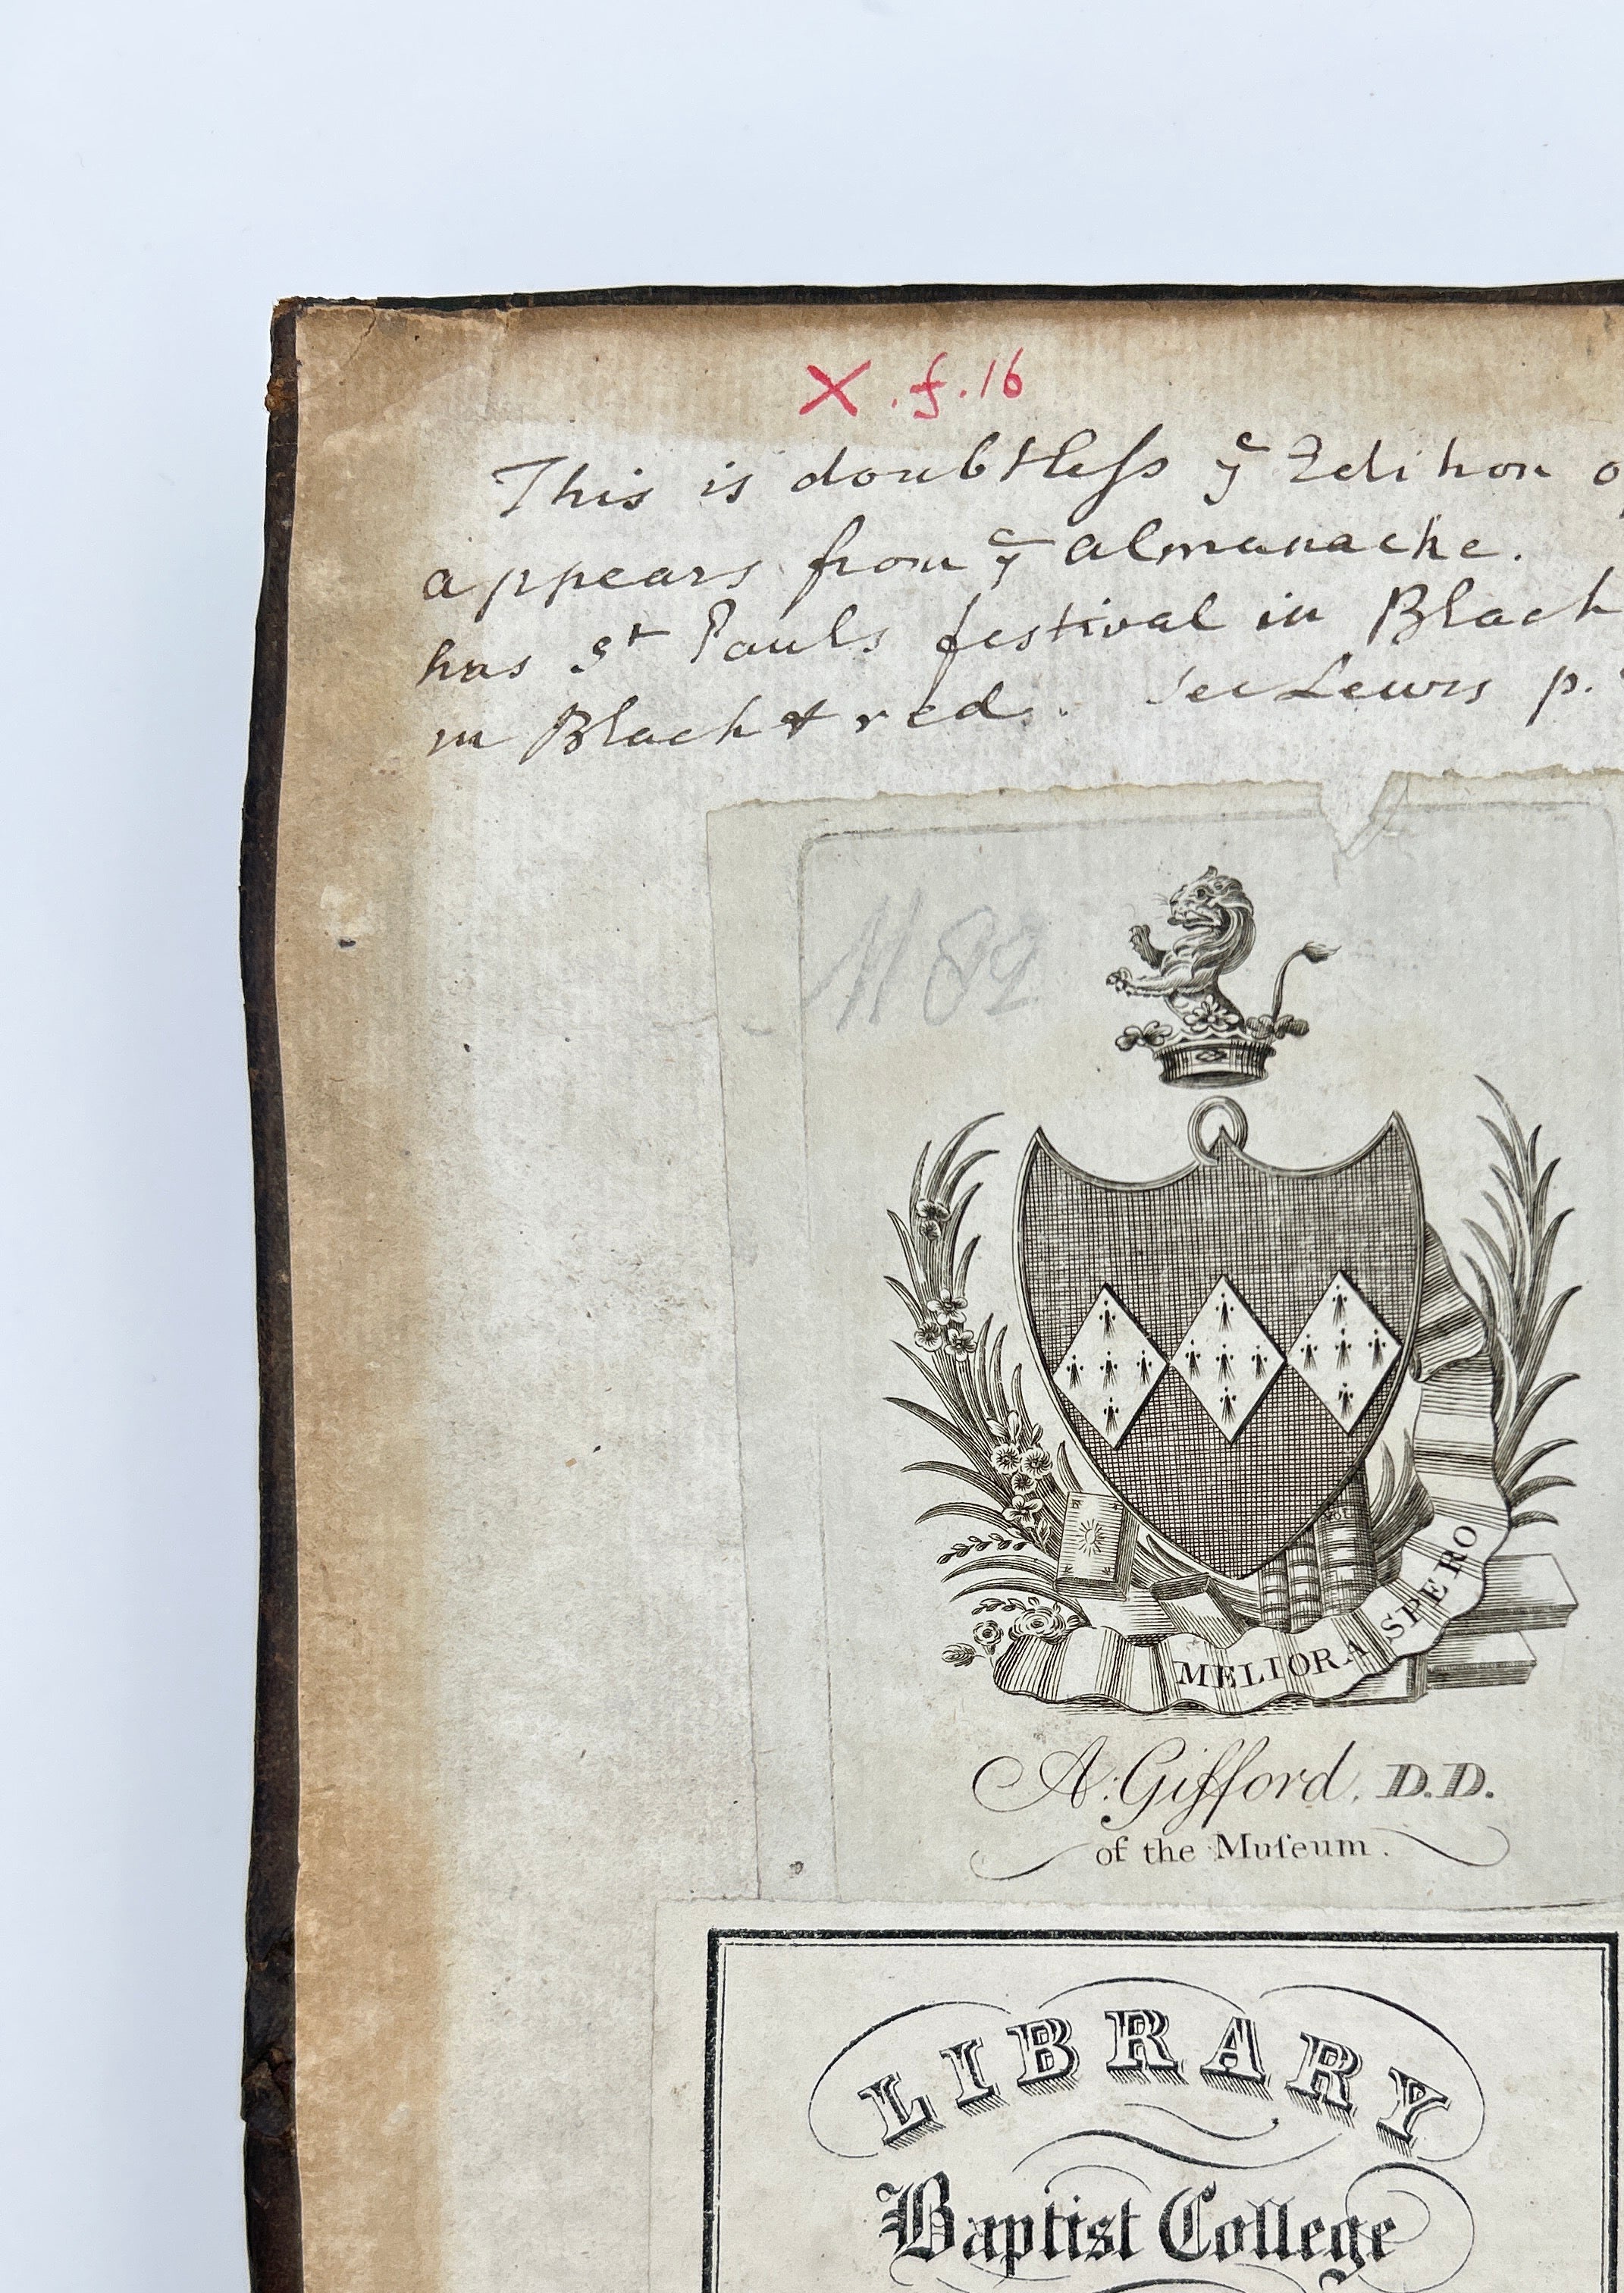 X . f. 16
This is doubtless yᵉ Edition
appears from yᵉ almanacke.
has Sᵗ Pauls festival in Black
in Black & red. See Lewis p.
1182
MELIORA SPERO
A: Gifford, D.D.
of the Muſeum.
LIBRARY
Baptist College